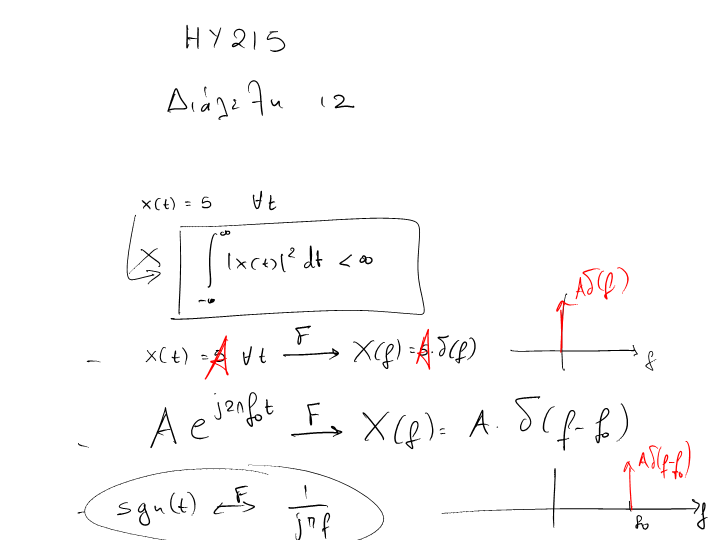 HY215
Διάλεξη 12
x(t) = 5 ∀t
X ∫_{-∞}^{∞} |x(t)|² dt < ∞
Aδ(f)
- x(t) = A ∀t F→ X(f) = A·δ(f)
f
- A e^{j2πf₀t} F→ X(f) = A · δ(f-f₀)
Aδ(f-f₀)
- sgn(t) F↔ 1/(jπf)
f₀ f